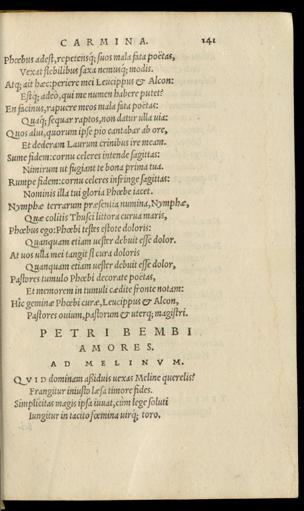 CARMINA. 141
Phœbus adest, repetensq́; suos mala fata poëtas,
Vexat flebilibus saxa nemusq́; modis.
Atq́; ait hæc: periere mei Leucippus & Alcon:
Estq́; adeò, qui me numen habere putet?
En facinus, rapuere meos mala fata poëtas:
Quaq́; sequar raptos, non datur ulla uia:
Quos alui, quorum ipse pio cantabar ab ore,
Et dederam Laurum crinibus ire meam.
Sume fidem: cornu celeres intende sagittas:
Nimirum ut fugiant te bona prima tua.
Rumpe fidem: cornu celeres infringe sagittas:
Nominis illa tui gloria Phœbe iacet.
Nymphæ terrarum præsentia numina, Nymphæ,
Quæ colitis Thusci littora curua maris,
Phœbus ego: Phœbi testes estote doloris:
Quanquam etiam uester debuit esse dolor.
At uos ulla mei tangit si cura doloris
Quanquam etiam uester debuit esse dolor,
Pastores tumulo Phœbi decorate poëtas,
Et memorem in tumuli cædite fronte notam:
Hîc geminæ Phœbi curæ, Leucippus & Alcon,
Pastores ouium, pastorum & uterq; magistri.
PETRI BEMBI
AMORES.
AD MELINVM.
QVID dominam assiduis uexas Meline querelis?
Frangitur iniusto læsa timore fides.
Simplicitas magis ipsa iuuat, cùm lege soluti
Iungitur in tacito fœmina uirq́; toro.